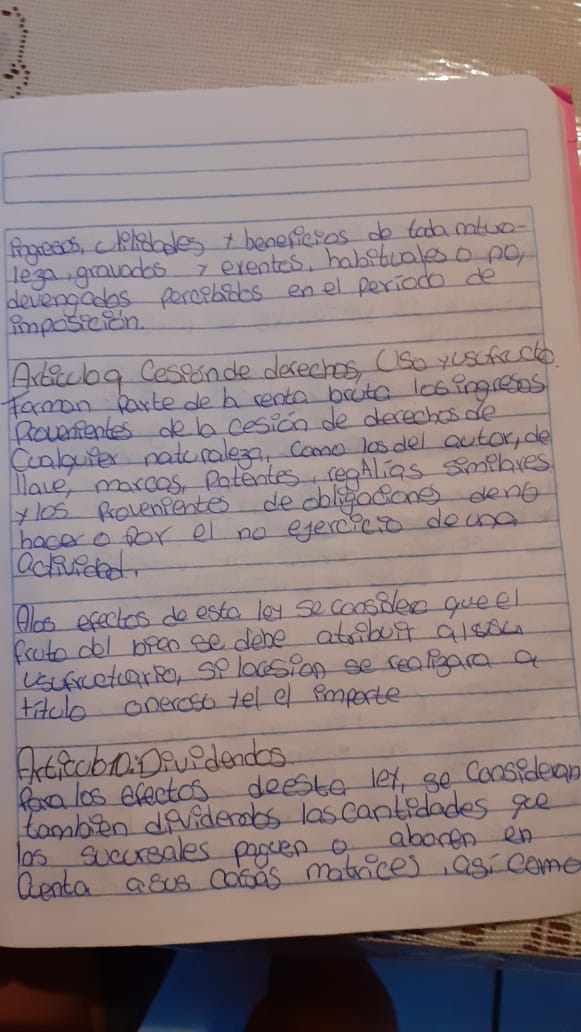 Ingresos, utilidades y beneficios de toda natura-
leza, gravados y exentos, habituales o no,
devengados percibidos en el período de
imposición.
Articulo 9 Cesion de desechos, Uso y usofructo.
Forman parte de la renta bruta los ingresos
Provenientes de la cesión de derechos de
Cualquier naturaleza, como los del autor, de
llave, marcas, Patentes, regAlias similares
y los Provenientes de obligaciones de no
hacer o por el no ejercicio de una
actividad.
Alos efectos de esta ley se considera que el
fruto del bien se debe atribuir a
usufructuario, si la cesion se realizara a
titulo oneroso tel el importe
Articulo 10: Dividendos
Para los efectos de esta ley, se consideran
tambien dividendos las cantidades que
las sucursales paguen o abonen en
Cuenta a sus casas matrices, así como